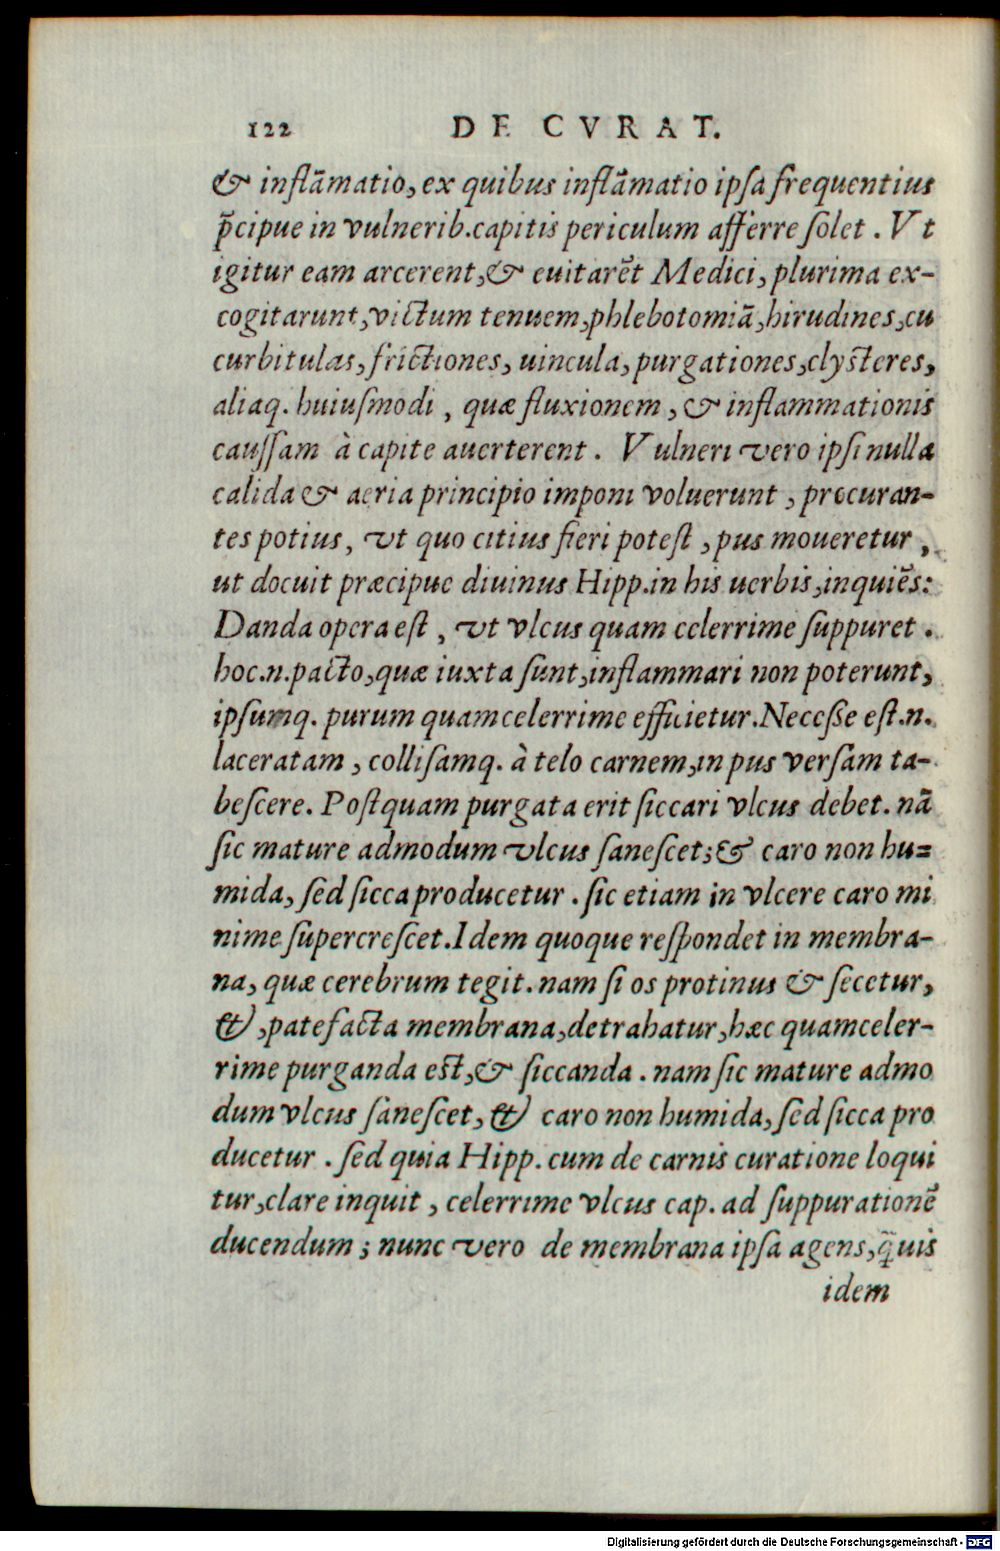 122 DE CVRAT.
& inflãmatio, ex quibus inflãmatio ipſa frequentius
p̃cipue in vulnerib. capitis periculum afferre ſolet. Vt
igitur eam arcerent, & euitarẽt Medici, plurima ex-
cogitarunt, victum tenuem, phlebotomiã, hirudines, cu
curbitulas, frictiones, uincula, purgationes, clysteres,
aliaq. huiuſmodi, quæ fluxionem, & inflammationis
cauſſam à capite auerterent. Vulneri vero ipſi nulla
calida & aeria principio imponi voluerunt, procuran-
tes potius, vt quo citius fieri poteſt, pus moueretur,
ut docuit præcipue diuinus Hipp. in his uerbis, inquiẽs:
Danda opera eſt, vt vlcus quam celerrime ſuppuret.
hoc .n. pacto, quæ iuxta ſunt, inflammari non poterunt,
ipſumq. purum quamcelerrime efficietur. Neceſſe eſt .n.
laceratam, colliſamq. à telo carnem, in pus verſam ta-
beſcere. Poſtquam purgata erit ſiccari vlcus debet. nã
ſic mature admodum vlcus ſaneſcet; & caro non hu=
mida, ſed ſicca producetur. ſic etiam in vlcere caro mi
nime ſupercreſcet. Idem quoque reſpondet in membra-
na, quæ cerebrum tegit. nam ſi os protinus & ſecetur,
&, patefacta membrana, detrahatur, hæc quamceler-
rime purganda est, & ſiccanda. nam ſic mature admo
dum vlcus ſaneſcet, & caro non humida, ſed ſicca pro
ducetur. ſed quia Hipp. cum de carnis curatione loqui
tur, clare inquit, celerrime vlcus cap. ad ſuppurationẽ
ducendum; nunc vero de membrana ipſa agens, q̃uis
idem
Digitalisierung gefördert durch die Deutsche Forschungsgemeinschaft - DFG